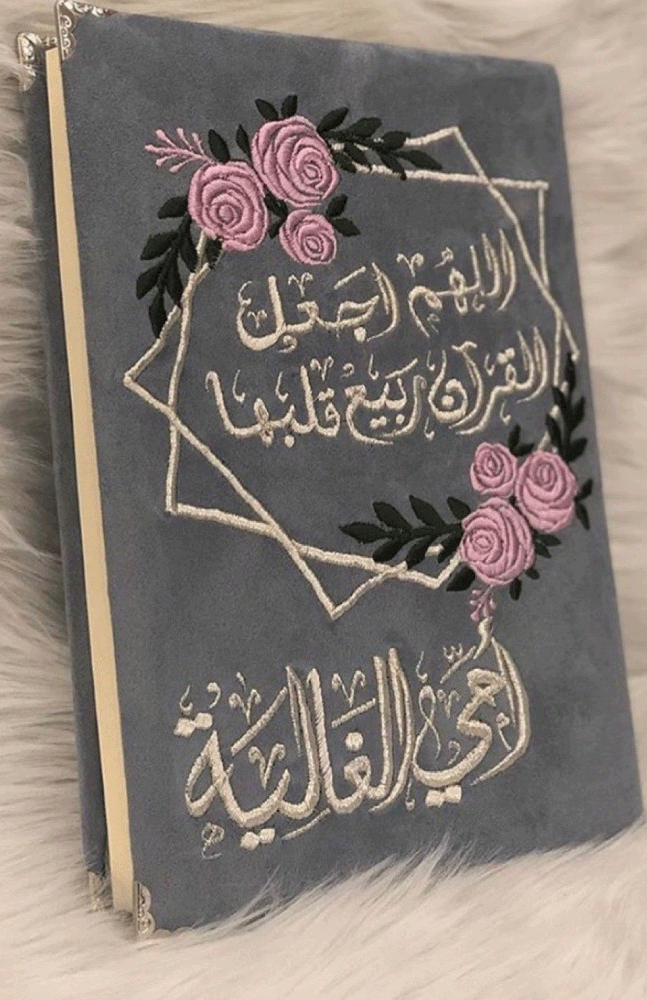 اللهُم اجَعل
القرآن ربَيعُ قلبها
أمي الغَالية